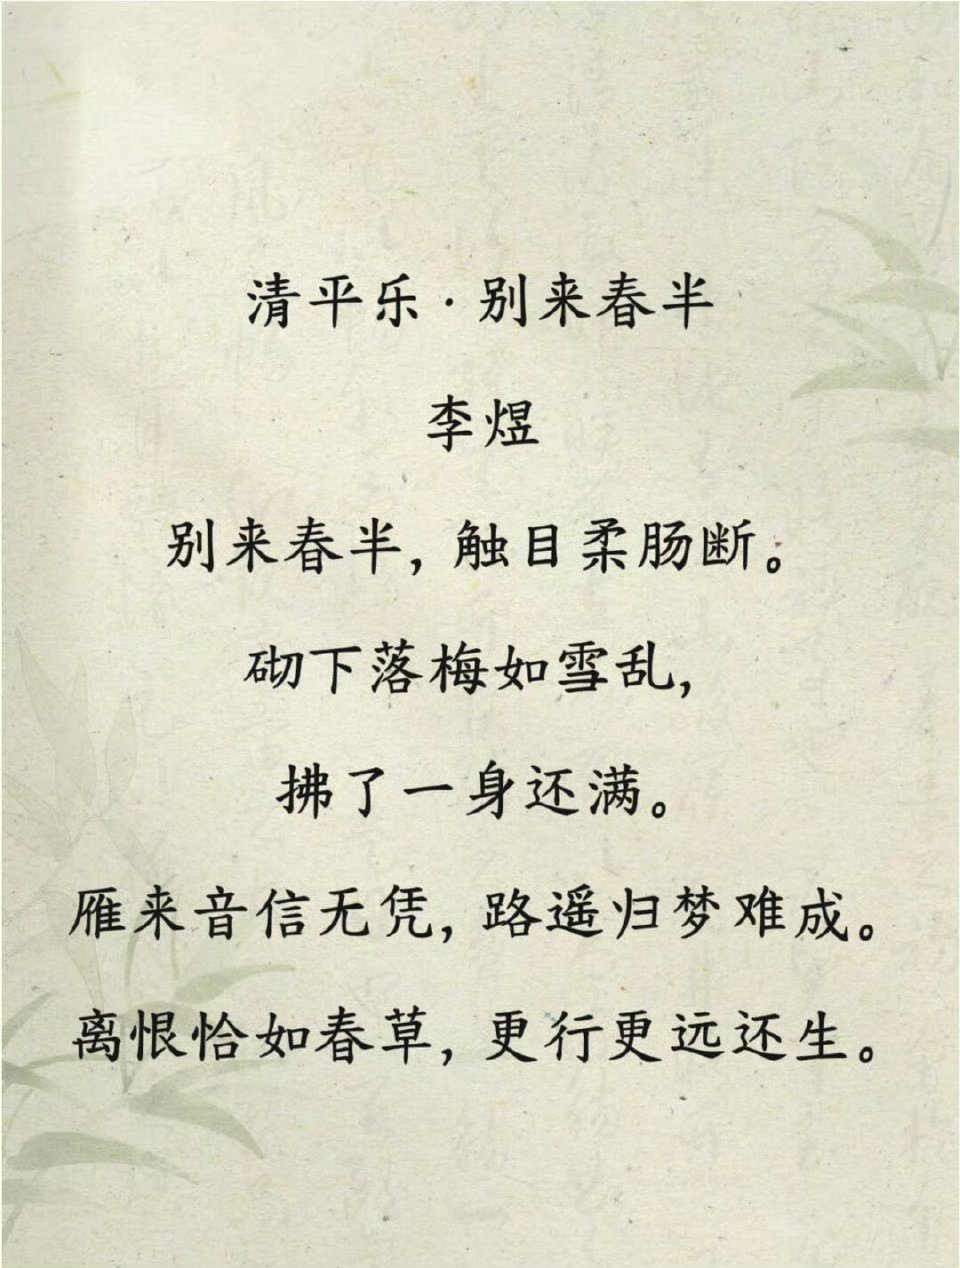 清平乐·别来春半
李煜
别来春半,触目柔肠断。
砌下落梅如雪乱,
拂了一身还满。
雁来音信无凭,路遥归梦难成。
离恨恰如春草,更行更远还生。